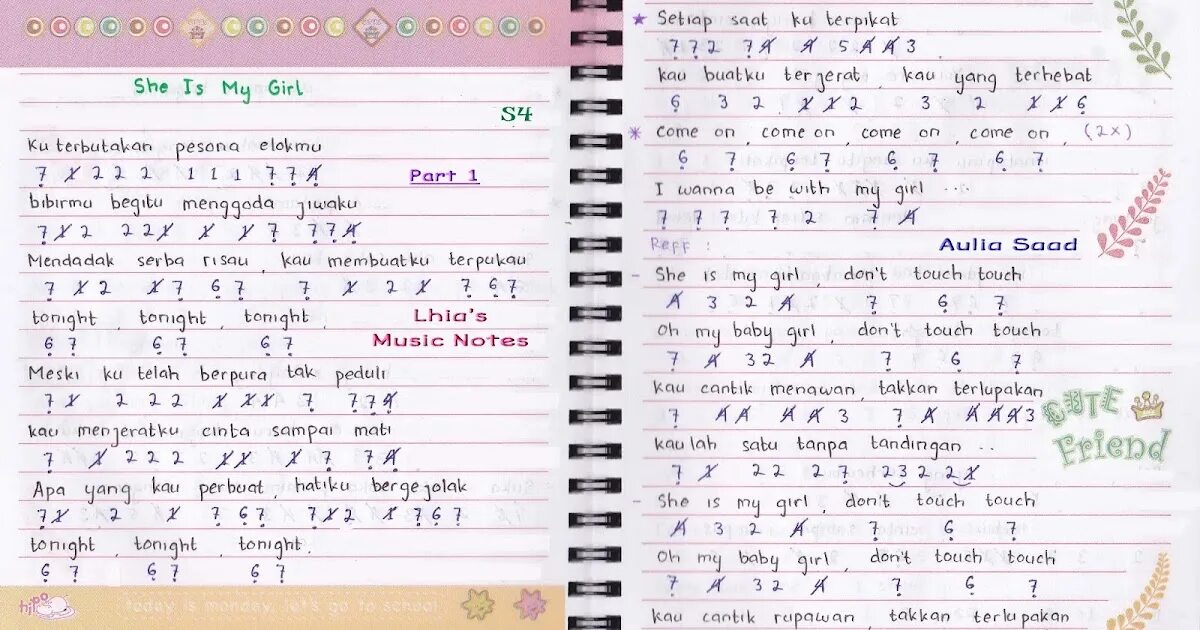 She Is My Girl
S4
Ku terbutakan pesona elokmu
7 1̸ 2 2 2 1 1 1 7 7 4̸
Part 1
bibirmu begitu menggoda jiwaku
7 1̸ 2 2 2 1̸ 1̸ 1̸ 7 7 7 4̸
Mendadak serba risau, kau membuatku terpukau
7 1̸ 2 1̸ 7 6 7 7 1̸ 2 1̸ 7 6 7
tonight, tonight, tonight,
6 7 6 7 6 7
Lhia's
Music Notes
Meski ku telah berpura tak peduli
7 1̸ 2 2 2 1̸ 1̸ 1̸ 7 7 7 4̸
kau menjeratku cinta sampai mati
7 1̸ 2 2 2 1̸ 1̸ 1̸ 7 7 4̸
Apa yang kau perbuat, hatiku bergejolak
7 1̸ 2 1̸ 7 6 7 7 1̸ 2 1̸ 7 6 7
tonight, tonight, tonight.
6 7 6 7 6 7
hippo
today is monday, let's go to school
* Setiap saat ku terpikat
7 7 2 7 4̸ 4̸ 5 4̸ 4̸ 3
kau buatku tergerat, kau yang terhebat
6 3 2 1̸ 1̸ 2 3 2 1̸ 1̸ 6
* Come on, come on, come on, come on, (2x)
6 7 6 7 6 7 6 7
I wanna be with my girl ...
7 7 7 7 2 7 4̸
Reff :
Aulia Saad
- She is my girl, don't touch touch
4̸ 3 2 4̸ 7 6 7
Oh my baby girl, don't touch touch
7 4̸ 3 2 4̸ 7 6 7
kau cantik menawan, takkan terlupakan
7 4̸ 4̸ 4̸ 4̸ 3 7 4̸ 4̸ 4̸ 4̸ 3
CUTE
Friend
kaulah satu tanpa tandingan ..
7 1̸ 2 2 2 7 2 3 2 2 1̸
- She is my girl, don't touch touch
4̸ 3 2 4̸ 7 6 7
Oh my baby girl, don't touch touch
7 4̸ 3 2 4̸ 7 6 7
kau cantik rupawan, takkan terlupakan